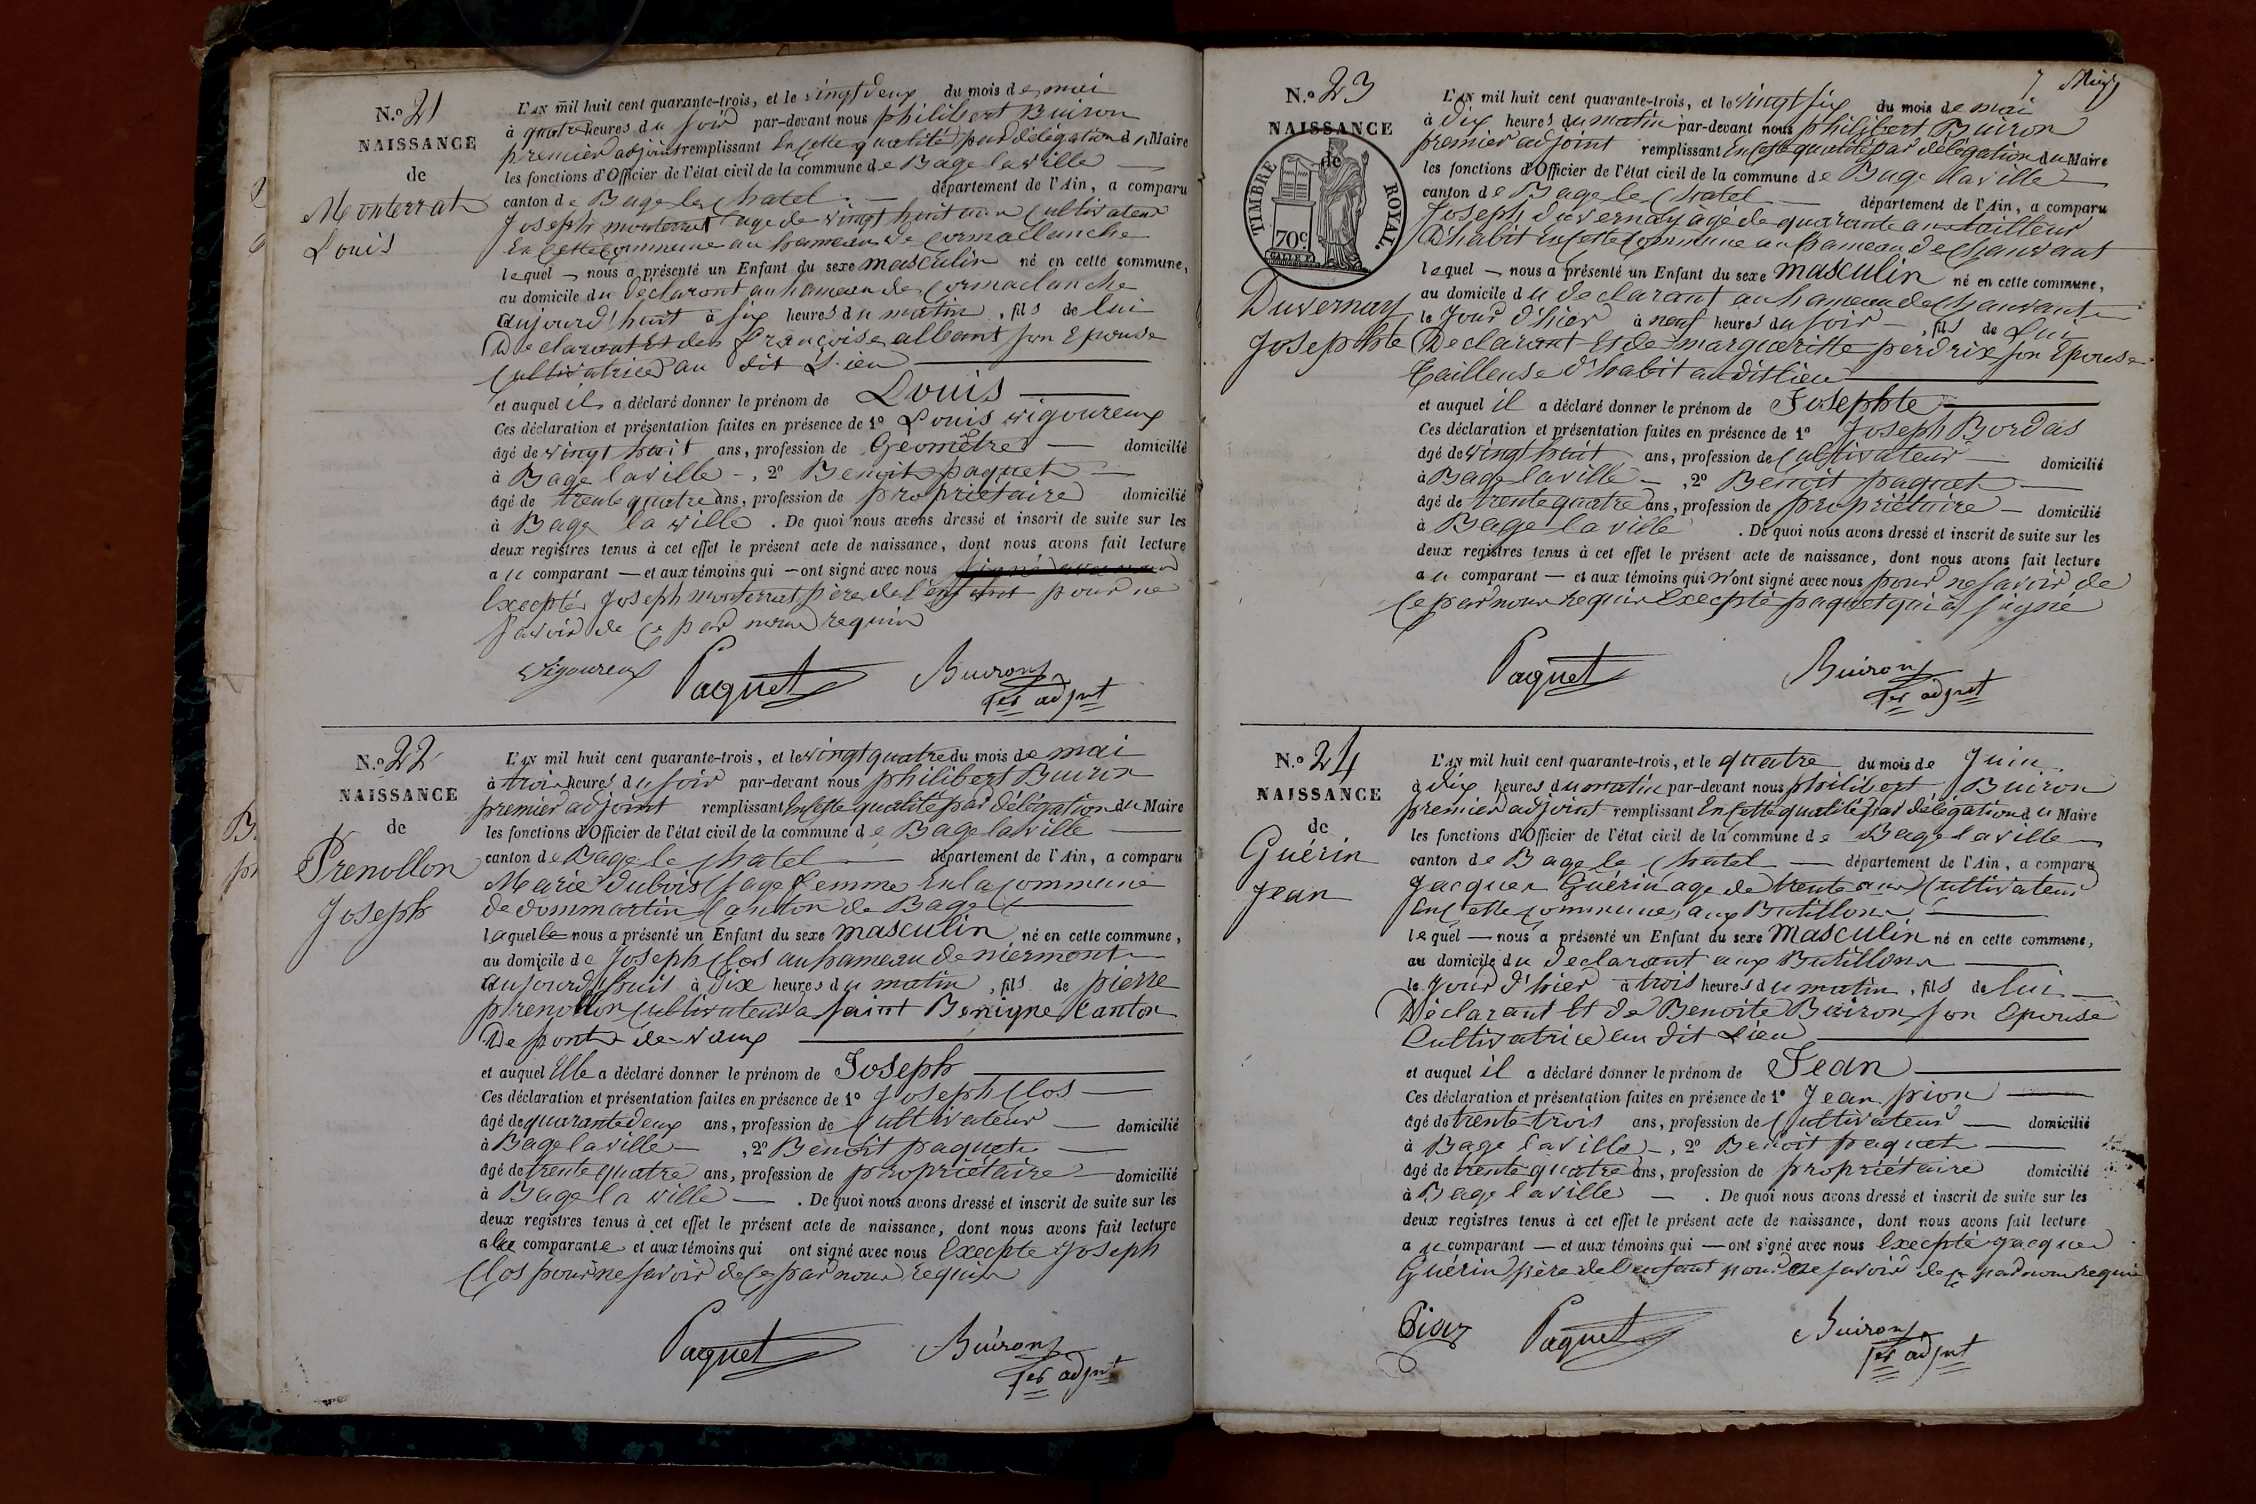 N.o 21
NAISSANCE
de
Monterrat
Louis
L'AN mil huit cent quarante-trois, et le vingt deux du mois de mai
à quatre heures du soir par-devant nous philibert Buiron
premier adjoint remplissant en cette qualité par délégation du Maire
les fonctions d'Officier de l'état civil de la commune de Bage la ville
canton de Bage le chatel département de l'Ain, a comparu
Joseph monterrat age de vingt huit ans cultivateur
en cette commune au hameau de cormaclanche
lequel nous a présenté un Enfant du sexe masculin né en cette commune,
au domicile du déclarant au hameau de cormaclanche
aujourd'huit à six heures du matin, fils de lui
Declarant Et de françoise albant son Epouse
Cultivatrice au dit Lieu
et auquel il a déclaré donner le prénom de Louis
Ces déclaration et présentation faites en présence de 1o Louis vigoureux
âgé de vingt huit ans, profession de Géomêtre domicilié
à Bage laville, 2o Benoit paquet
âgé de trente quatre ans, profession de propriétaire domicilié
à Bage la ville. De quoi nous avons dressé et inscrit de suite sur les
deux registres tenus à cet effet le présent acte de naissance, dont nous avons fait lecture
au comparant et aux témoins qui ont signé avec nous
Excepté Joseph monterrat père de l'enfant pour ne
savoir de ce par nous requis
Vigoureux Paquet Buiron
1er adjnt
N.o 22
NAISSANCE
de
Prenollon
Joseph
L'AN mil huit cent quarante-trois, et le vingt quatre du mois de mai
à trois heures du soir par-devant nous philibert Buiron
premier adjoint remplissant en cette qualité par délégation du Maire
les fonctions d'Officier de l'état civil de la commune de Bage laville
canton de Bage le chatel département de l'Ain, a comparu
Marie Dubois sage femme En la commune
de dommartin canton de Bage
laquelle nous a présenté un Enfant du sexe masculin né en cette commune,
au domicile de Joseph Clos au hameau de niermont
aujourd'huit à dix heures du matin, fils de pierre
prenollon cultivateur a saint Benigne Canton
De pont-de-vaux
et auquel Elle a déclaré donner le prénom de Joseph
Ces déclaration et présentation faites en présence de 1o Joseph Clos
âgé de quarante deux ans, profession de cultivateur domicilié
à Bage laville, 2o Benoit paquet
âgé de trente quatre ans, profession de propriétaire domicilié
à Bage la ville. De quoi nous avons dressé et inscrit de suite sur les
deux registres tenus à cet effet le présent acte de naissance, dont nous avons fait lecture
a la comparante et aux témoins qui ont signé avec nous Excepté Joseph
Clos pour ne savoir de ce par nous requis
Paquet Buiron
1er adjnt
7
N.o 23
NAISSANCE
de
TIMBRE ROYAL.
70c
Duvernay
Josephte
L'AN mil huit cent quarante-trois, et le vingt six du mois de mai
à dix heures du matin par-devant nous philibert Buiron
premier adjoint remplissant en cette qualité par délégation du Maire
les fonctions d'Officier de l'état civil de la commune de Bage laville
canton de Bage le Chatel département de l'Ain, a comparu
Joseph duvernay agé de quarante ans tailleur
D'habit en cette commune au hameau de Chanvant
lequel nous a présenté un Enfant du sexe masculin né en cette commune,
au domicile du declarant au hameau de Chanvant
le Jour d'hier à neuf heures du soir, fils de Lui
Declarant Et de margueritte perdrix son Epouse
tailleuse d'habit au dit lieu
et auquel il a déclaré donner le prénom de Josephte
Ces déclaration et présentation faites en présence de 1o Joseph Bordas
âgé de vingt huit ans, profession de cultivateur domicilié
à Bage laville, 2o Benoit paquet
âgé de trente quatre ans, profession de propriétaire domicilié
à Bage la ville. De quoi nous avons dressé et inscrit de suite sur les
deux registres tenus à cet effet le présent acte de naissance, dont nous avons fait lecture
au comparant et aux témoins qui n'ont signé avec nous pour ne savoir de
ce par nous requis Excepté paquet qui a signé
Paquet Buiron
1er adjnt
N.o 24
NAISSANCE
de
Guérin
Jean
L'AN mil huit cent quarante-trois, et le quatre du mois de Juin
à dix heures du matin par-devant nous philibert Buiron
premier adjoint remplissant En cette qualité par délégation du Maire
les fonctions d'Officier de l'état civil de la commune de Bage laville
canton de Bage le Chatel département de l'Ain, a comparu
Jacques Guérin age de trente ans Cultivateur
En cette commune, aux Butillons
lequel nous a présenté un Enfant du sexe Masculin né en cette commune,
au domicile du declarant aux Butillons
le Jour d'hier à trois heures du matin, fils de lui
Déclarant Et de Benoite Buiron son Epouse
Cultivatrice au dit Lieu
et auquel il a déclaré donner le prénom de Jean
Ces déclaration et présentation faites en présence de 1o Jean pion
âgé de trente trois ans, profession de Cultivateur domicilié
à Bage laville, 2o Benoit paquet
âgé de trente quatre ans, profession de propriétaire domicilié
à Bage laville. De quoi nous avons dressé et inscrit de suite sur les
deux registres tenus à cet effet le présent acte de naissance, dont nous avons fait lecture
au comparant et aux témoins qui ont signé avec nous Excepté Jacques
Guérin père de l'enfant pour ne savoir de ce par nous requis
Pion Paquet Buiron
1er adjnt